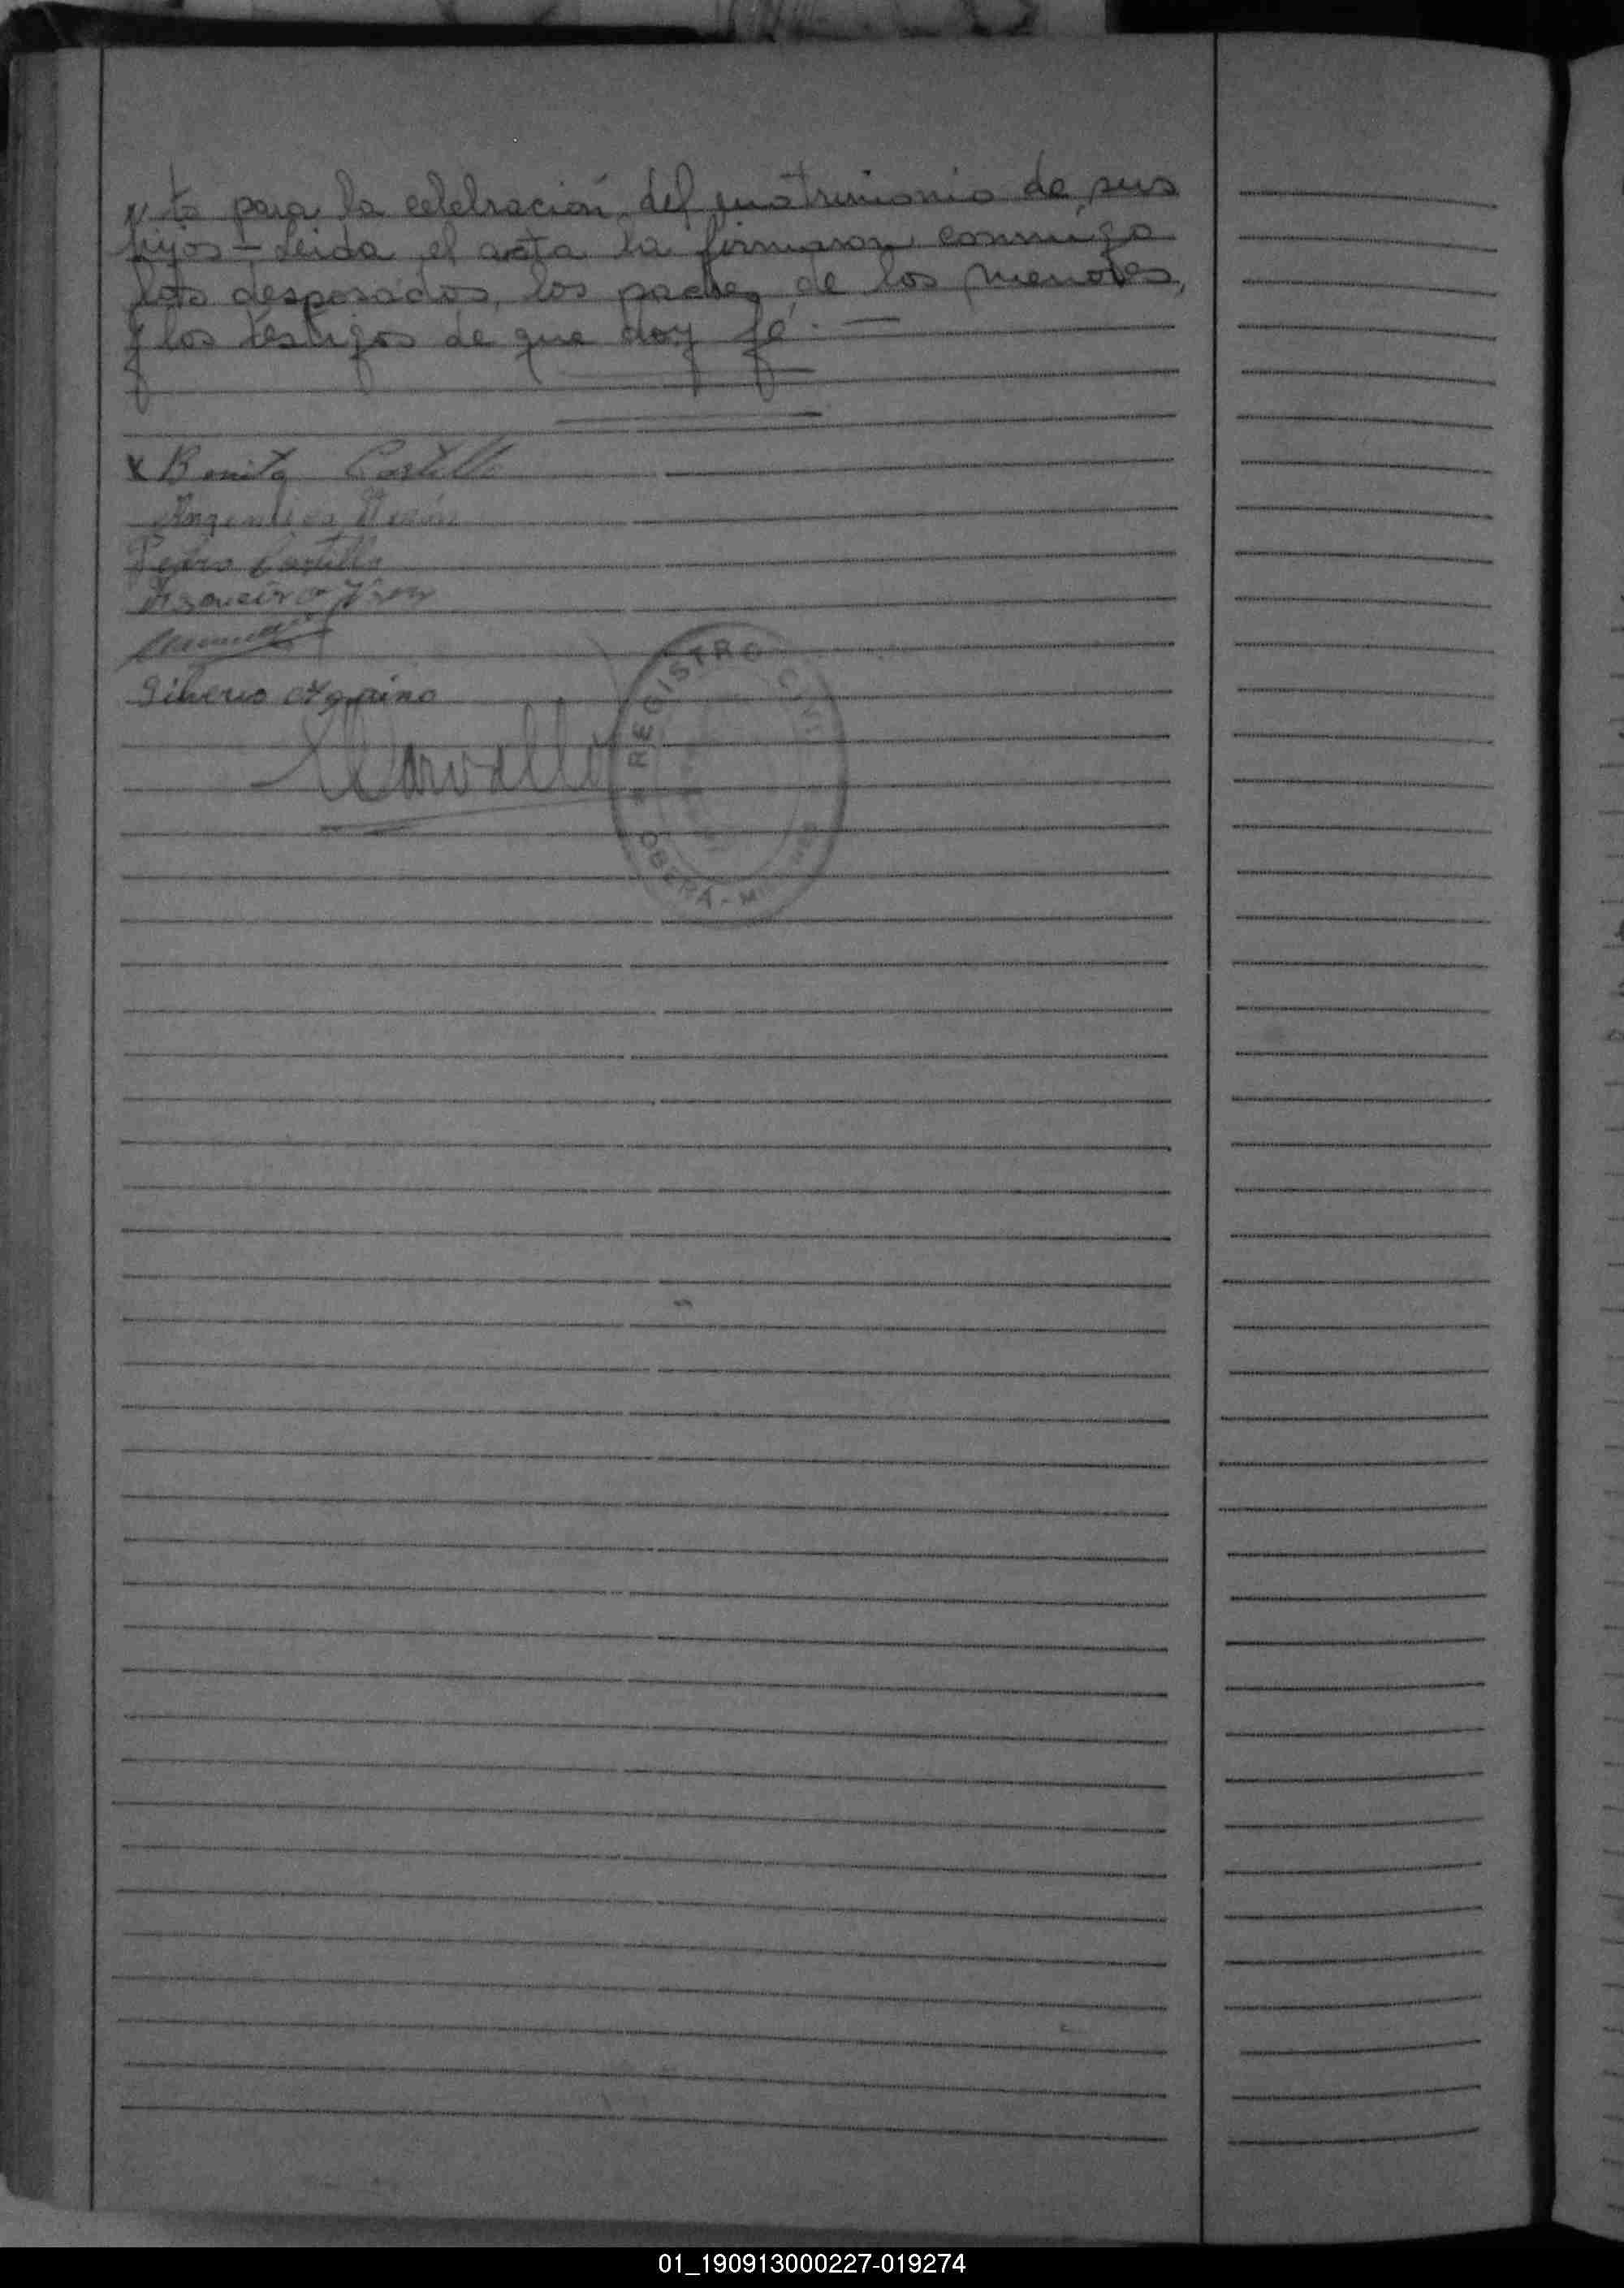 nto para la celebración del matrimonio de sus
hijos - Leida el acta la firmaron conmigo
los desposados, los padres de los menores,
y los testigos de que doy fé. —
x Benito Castillo
Pedro Castillo
Silverio Aquino
Carvallo
REGISTRO CIVIL
OBERÁ - MISIONES
01_190913000227-019274